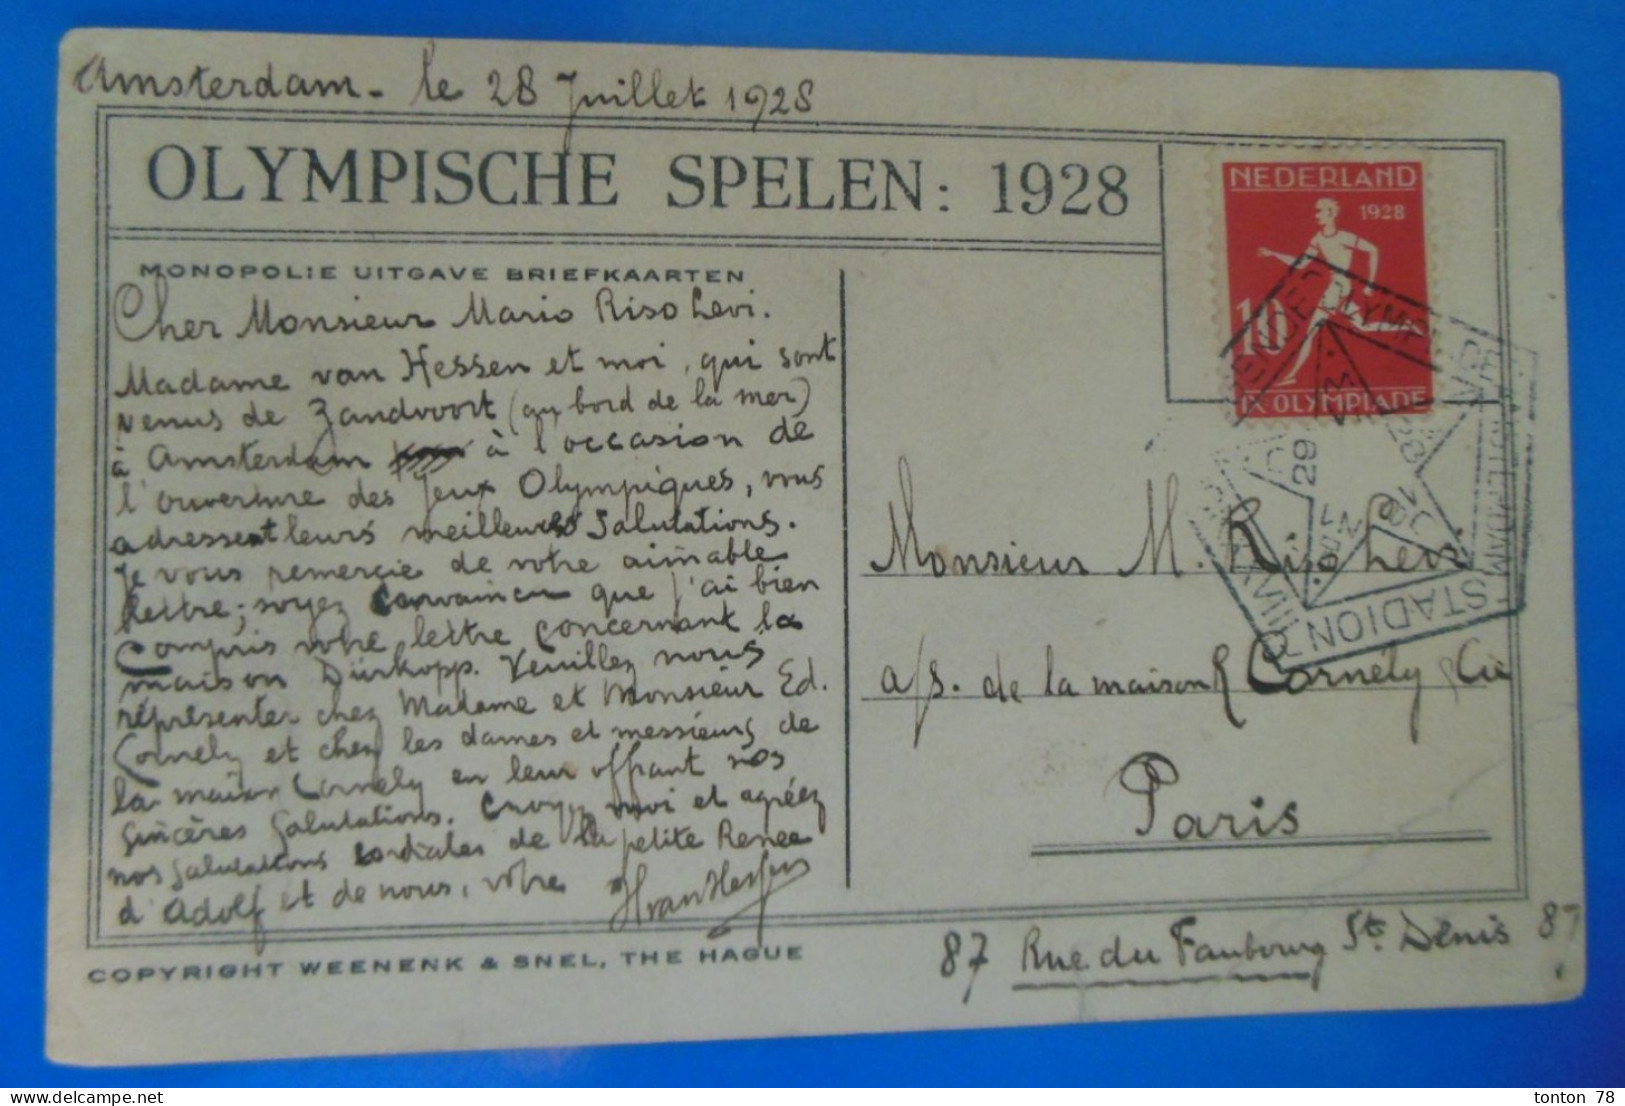 Amsterdam - le 28 Juillet 1928
OLYMPISCHE SPELEN: 1928
MONOPOLIE UITGAVE BRIEFKAARTEN
Cher Monsieur Mario Riso Levi.
Madame van Hessen et moi, qui sont
venus de Zandvoort (au bord de la mer)
à Amsterdam à l'occasion de
l'ouverture des Jeux Olympiques, vous
adressent leurs meilleures salutations.
Je vous remercie de votre aimable
lettre; soyez convaincu que j'ai bien
compris votre lettre concernant la
maison Dürkopp. Veuillez nous
représenter chez Madame et Monsieur Ed.
Cornely et chez les dames et messieurs de
la maison Cornely en leur offrant nos
sincères salutations. Croyez moi et agréez
nos salutations cordiales de la petite Renee
d'Adolf et de nous, votre
HvanHessen
COPYRIGHT WEENENK & SNEL, THE HAGUE
NEDERLAND
1928
10
IX OLYMPIADE
29
STADION
AMSTERDAM
Monsieur M. Riso Levi
a/s. de la maison Cornély & Cie
Paris
87 Rue du Faubourg St. Denis 87
tonton 78